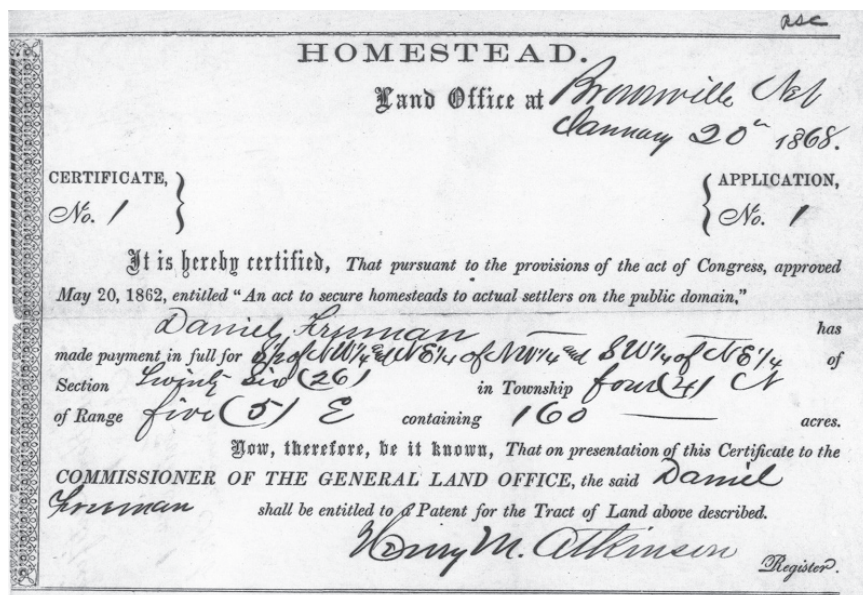 HOMESTEAD.
Land Office at Brownville Neb
January 20th 1868.
CERTIFICATE,
No. 1
APPLICATION,
No. 1
It is hereby certified, That pursuant to the provisions of the act of Congress, approved
May 20, 1862, entitled “An act to secure homesteads to actual settlers on the public domain,”
Daniel Freeman has
made payment in full for S½ of NW¼ and NE¼ of NW¼ and SW¼ of NE¼ of
Section Twenty Six (26) in Township four (4) N
of Range five (5) E containing 160 acres.
Now, therefore, be it known, That on presentation of this Certificate to the
COMMISSIONER OF THE GENERAL LAND OFFICE, the said Daniel
Freeman shall be entitled to a Patent for the Tract of Land above described.
Henry M. Atkinson
Register.